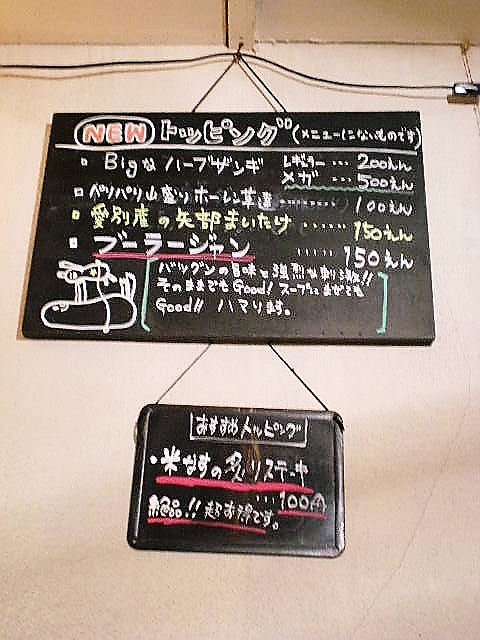 NEW トッピング(メニューにないものです)
▫ Bigなハーブザンギ レギュラー … 200えん
メガ … 500えん
▫ パリパリ山盛りホーレン草達 ……… 100えん
▫ 愛別産の矢部まいたけ …… 150えん
▫ ブーラージャン …… 150えん
バツグンの旨味と強烈な刺激!!
そのままでもGood! スープにまぜても
Good!! ハマります。
おすすめトッピング
・米なすの炙りステーキ
… 100円
絶品!! 超お得です。